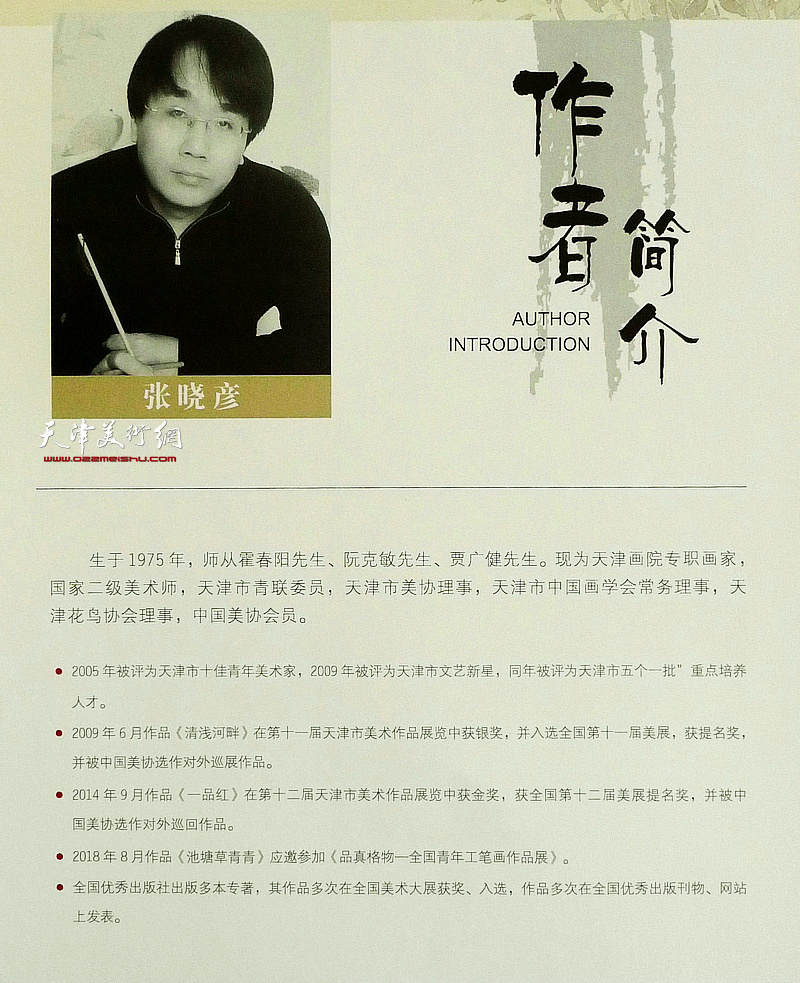 作者
简介
AUTHOR
INTRODUCTION
张晓彦
天津美術網
www.022meishu.com
生于 1975 年，师从霍春阳先生、阮克敏先生、贾广健先生。现为天津画院专职画家，
国家二级美术师，天津市青联委员，天津市美协理事，天津市中国画学会常务理事，天
津花鸟协会理事，中国美协会员。
● 2005 年被评为天津市十佳青年美术家，2009 年被评为天津市文艺新星，同年被评为天津市五个一批”重点培养
人才。
● 2009 年 6 月作品《清浅河畔》在第十一届天津市美术作品展览中获银奖，并入选全国第十一届美展，获提名奖，
并被中国美协选作对外巡展作品。
● 2014 年 9 月作品《一品红》在第十二届天津市美术作品展览中获金奖，获全国第十二届美展提名奖，并被中
国美协选作对外巡回作品。
● 2018 年 8 月作品《池塘草青青》应邀参加《品真格物—全国青年工笔画作品展》。
● 全国优秀出版社出版多本专著，其作品多次在全国美术大展获奖、入选，作品多次在全国优秀出版刊物、网站
上发表。